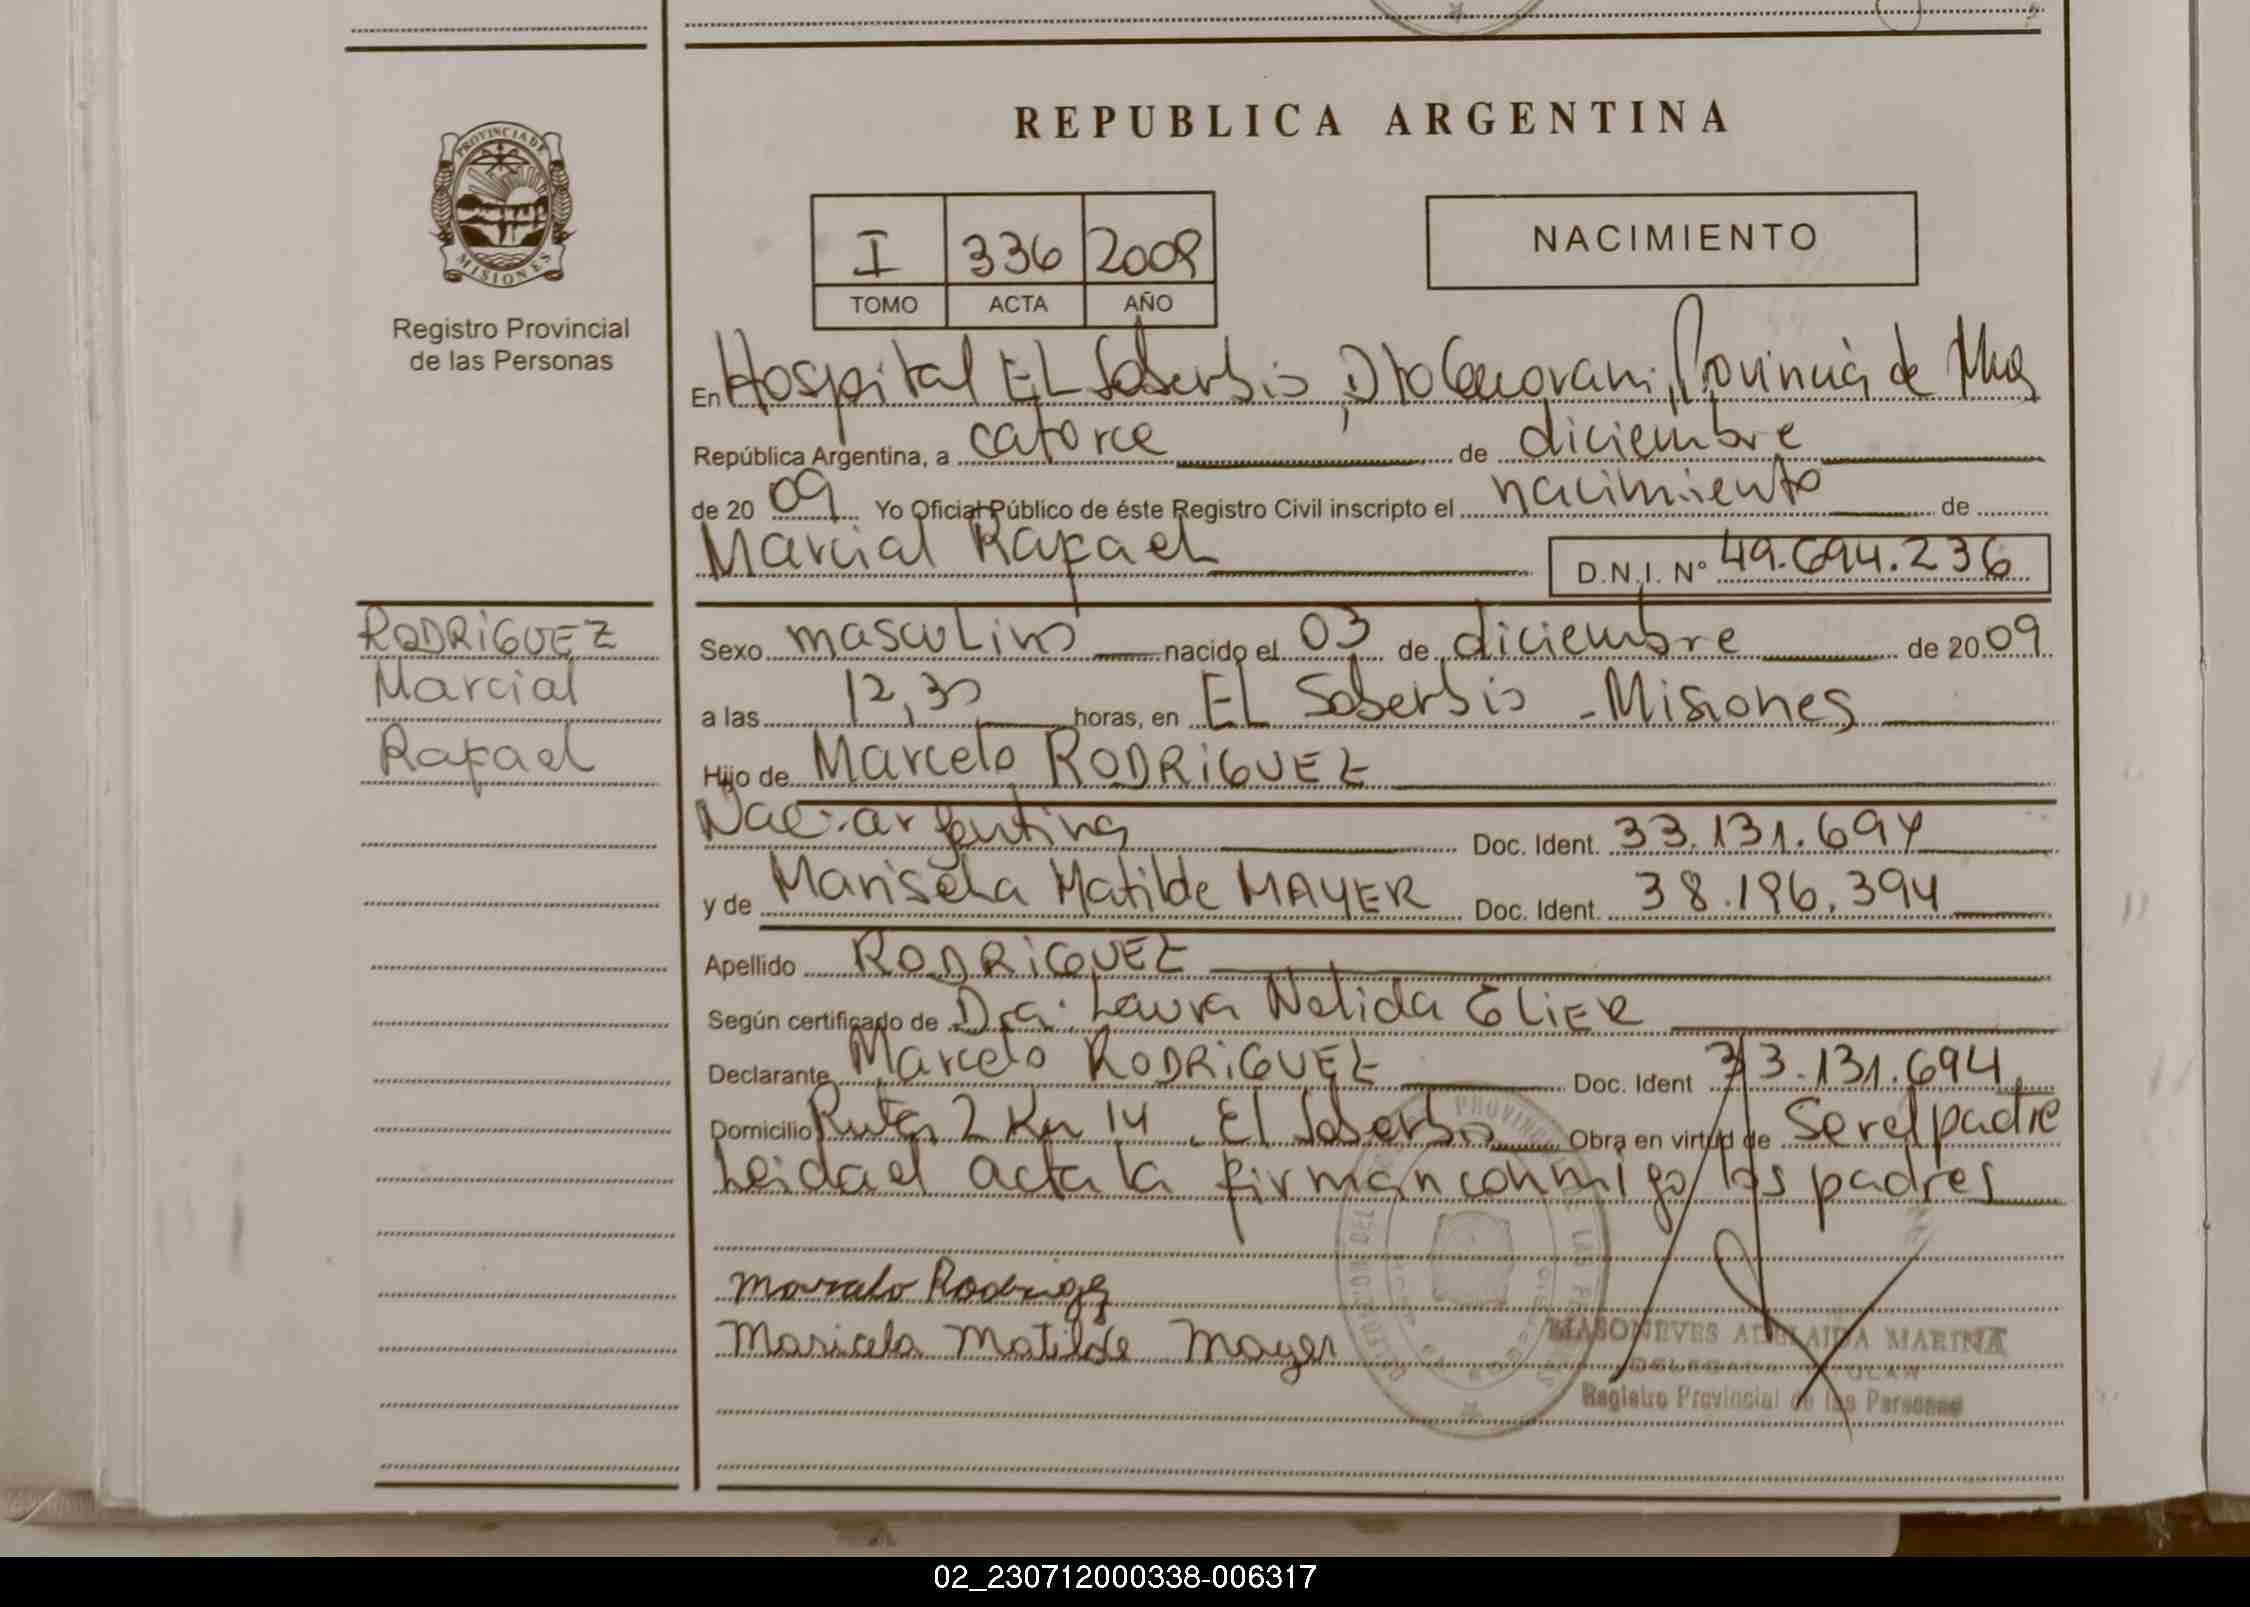 REPUBLICA ARGENTINA
PROVINCIA DE
MISIONES
Registro Provincial
de las Personas
I 336 2009
TOMO ACTA AÑO
NACIMIENTO
En Hospital EL Soberbio, Dto Guarani, Provincia de Mnes
República Argentina, a catorce de diciembre
de 2009 Yo Oficial Público de éste Registro Civil inscripto el nacimiento de
Marcial Rafael D.N.I. Nº 49.694.236
RODRIGUEZ
Marcial
Rafael
Sexo masculino nacido el 03 de diciembre de 2009
a las 12,30 horas, en EL Soberbio - Misiones
Hijo de Marcelo RODRIGUEZ
Nac. argentina Doc. Ident. 33.131.694
y de Marisela Matilde MAYER Doc. Ident. 38.196.394
Apellido RODRIGUEZ
Según certificado de Dra. Laura Nelida GLIER
Declarante Marcelo RODRIGUEZ Doc. Ident 33.131.694
Domicilio Ruta 2 Km 14. El Soberbio Obra en virtud de Ser el padre
Leida el acta la firman conmigo los padres
Marcelo Rodriguez
Maricela Matilde Mayer
MASONEVES ADELAIDA MARINA
DELEGADA TITULAR
Registro Provincial de las Personas
02_230712000338-006317